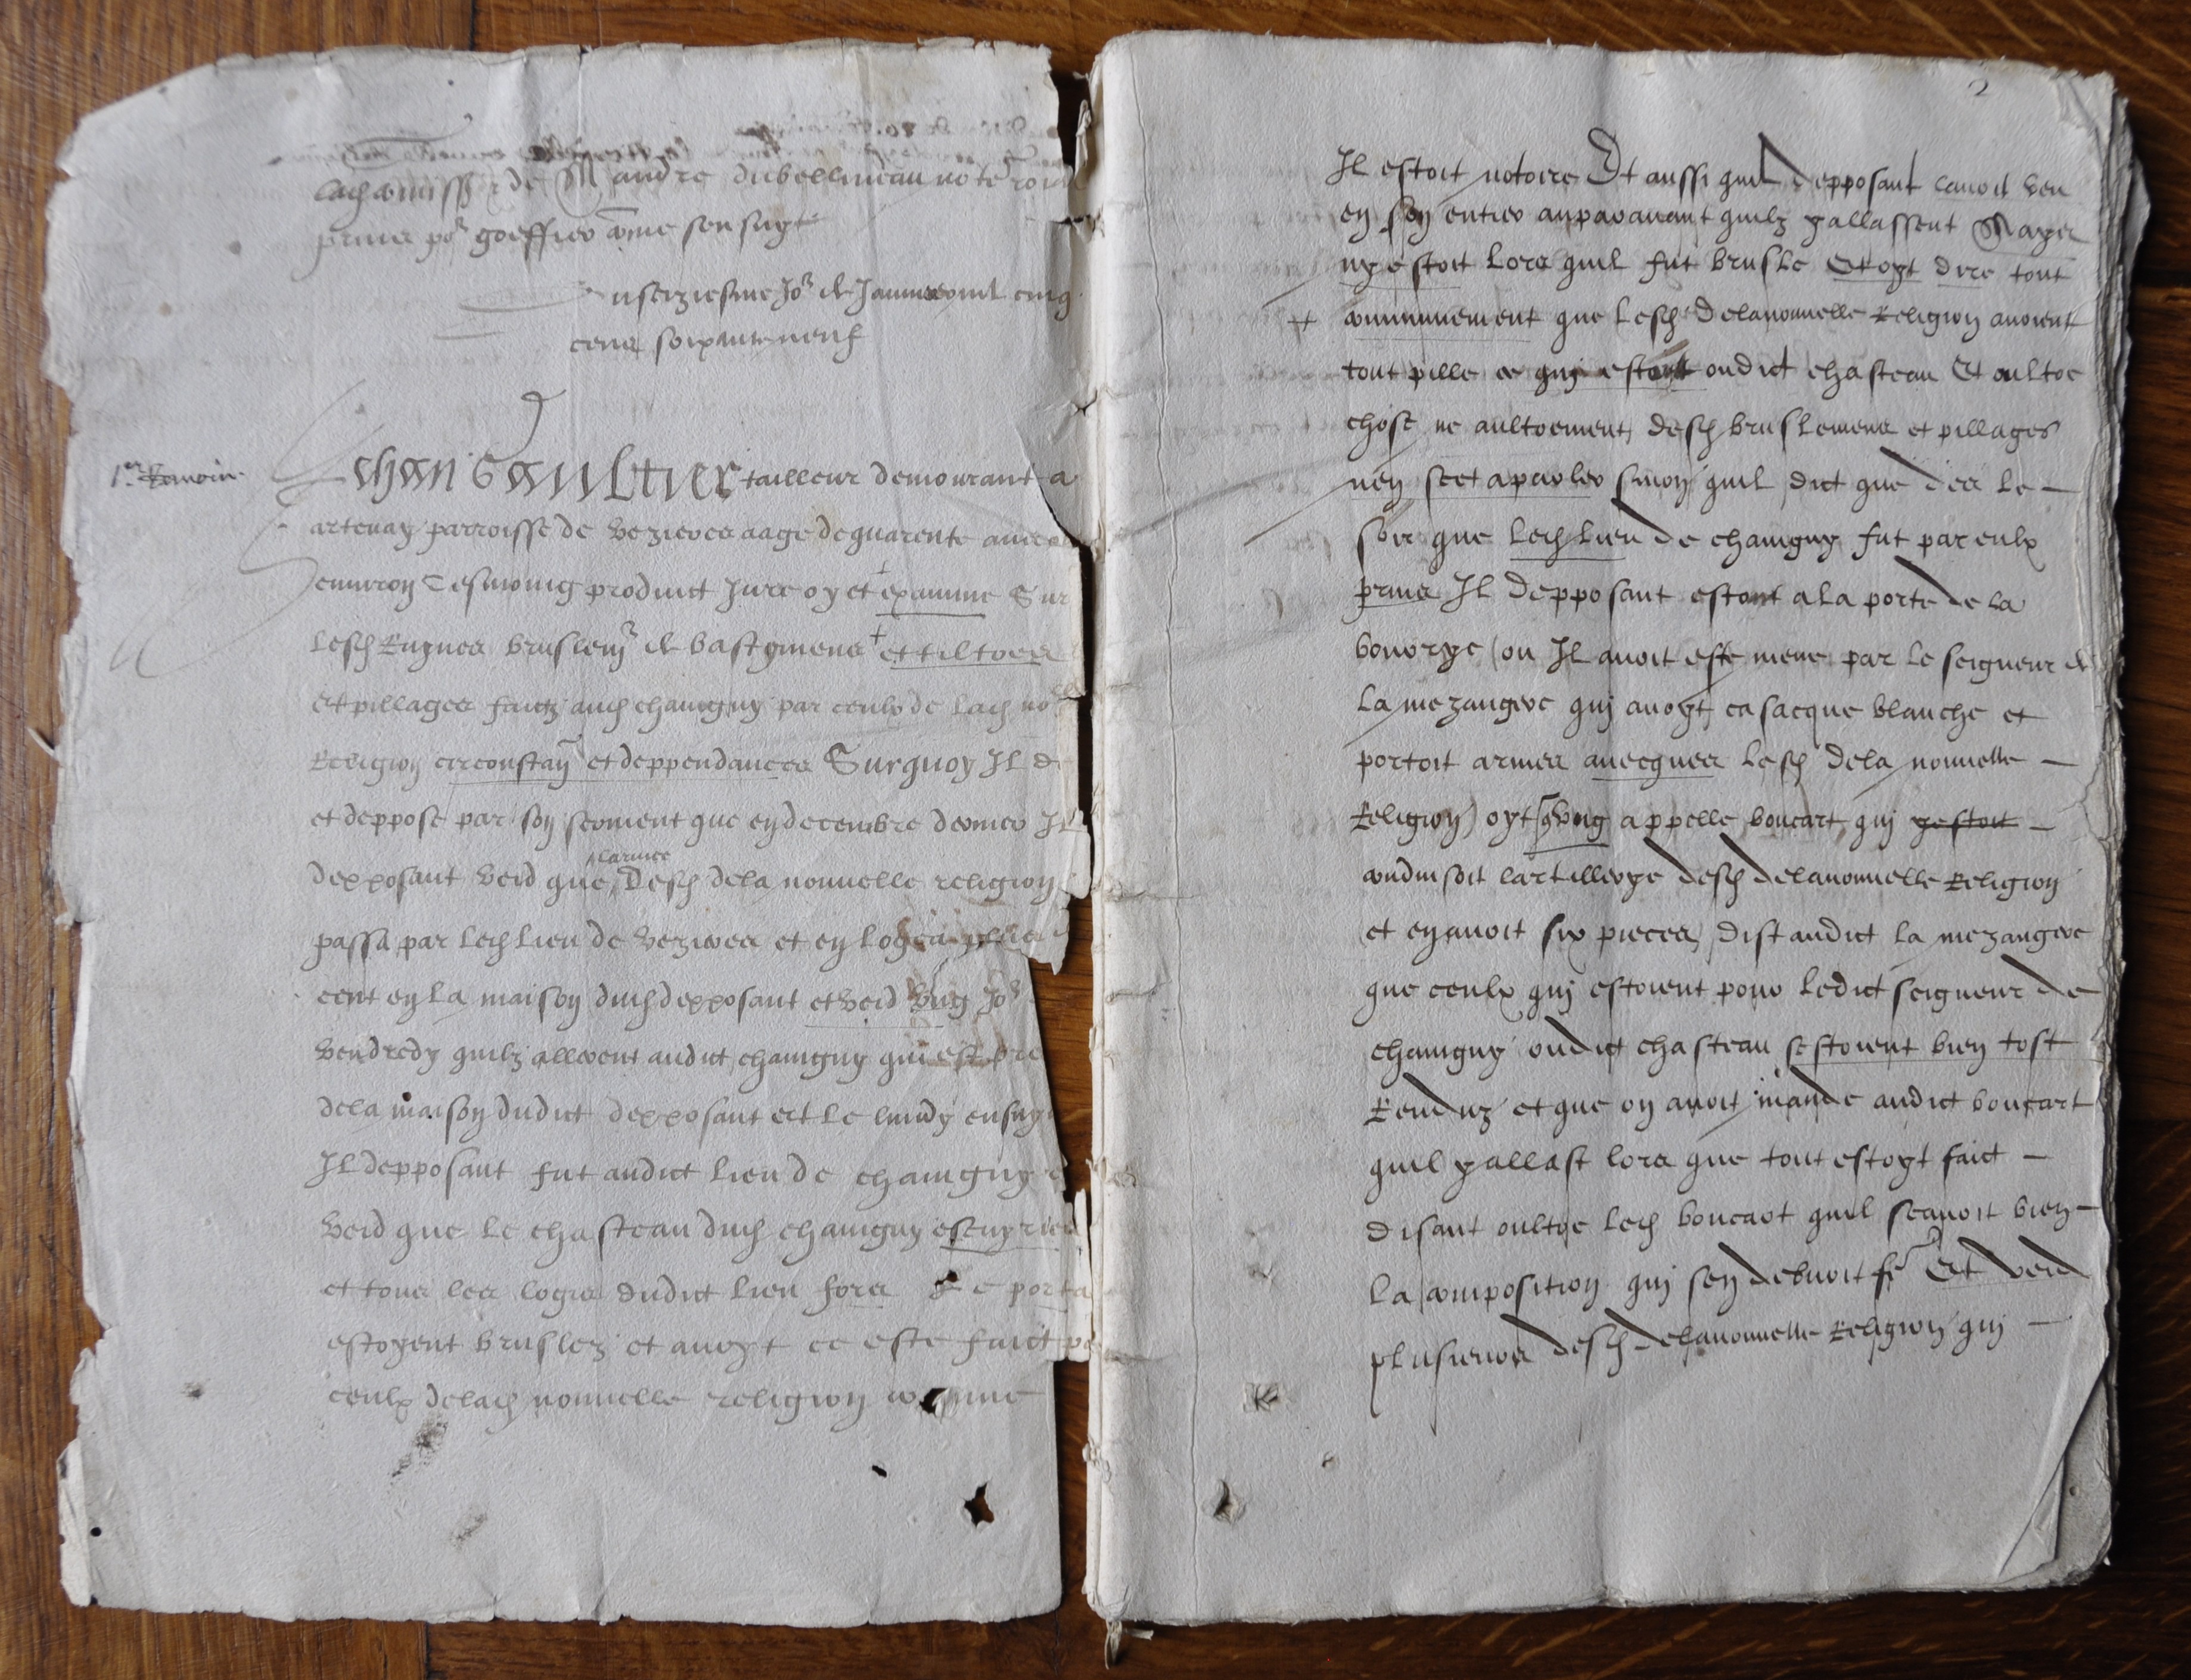 lad commission de Me andre dubellineau notere roial
prins pour greffier comme sensuyt
Du seziesme Jor de Janvier mil cinq
cens soixante neuf
1er temoin
Jehan Gaultier tailleur demourant a
artenay parroisse de vezieres aage de quarente ans
environ tesmoing produict jure oy et examine Sur
lesd Ruynes bruslemt de bastymens + et tiltres
et pillages faictz aud chavigny par ceulx de lad nolle
Religion circonstan et deppendances Surquoy Il d
et deppose par son serment que en decembre dernier Il
larmee
depposant veid que desd dela nouvelle religion
passa par led lieu de vezieres et en logea
cent en la maison dud depposant et veid ung Jor
vendredy quilz allerent audict chavigny qui est pre
dela maison dudict depposant et le lundy ensuy
Il depposant fut audict lieu de chavigny
veid que le chasteau dud chavigny
et tous les logis dudict lieu fors le porta
estoyent bruslez et avoyt ce este faict pa
ceulx delad nouvelle religion comme
2
Il estoit notoire Et aussi quil depposant lavoit veu
en son entier auparavant quilz y allassent Mays
ny estoit lors quil fut brusle Et oyt dire tout
+ communement que lesd delanouvelle Religion avoient
tout pille ce qui estoit oudict chasteau Et aultre
chose ne aultrement desd bruslemens et pillages
nen scet a parler sinon quil dict que des le
soir que led lieu de chavigny fut par eulx
prins Il depposant estant a la porte de la
(ou Il avoit este mene par le seigneur de
la mezangere qui avoyt casacque blanche et
portoit armes avecques lesd dela nouvelle
Religion) oyt q ung appelle boucart qui yestoit
conduisoit lartillerye desd delanouvelle Religion
et en avoit six pieces dist audict la mezangere
que ceulx qui estoient pour ledict seigneur de
chavigny oudict chasteau sestoient bien tost
Renduz et que on avoit mande audict boucart
quil y allast lors que tout estoyt faict
disant oultre led boucart quil scavoit bien
la composition qui sen debvoit fe Et veid
plusieurs desd delanouvelle Religion qui